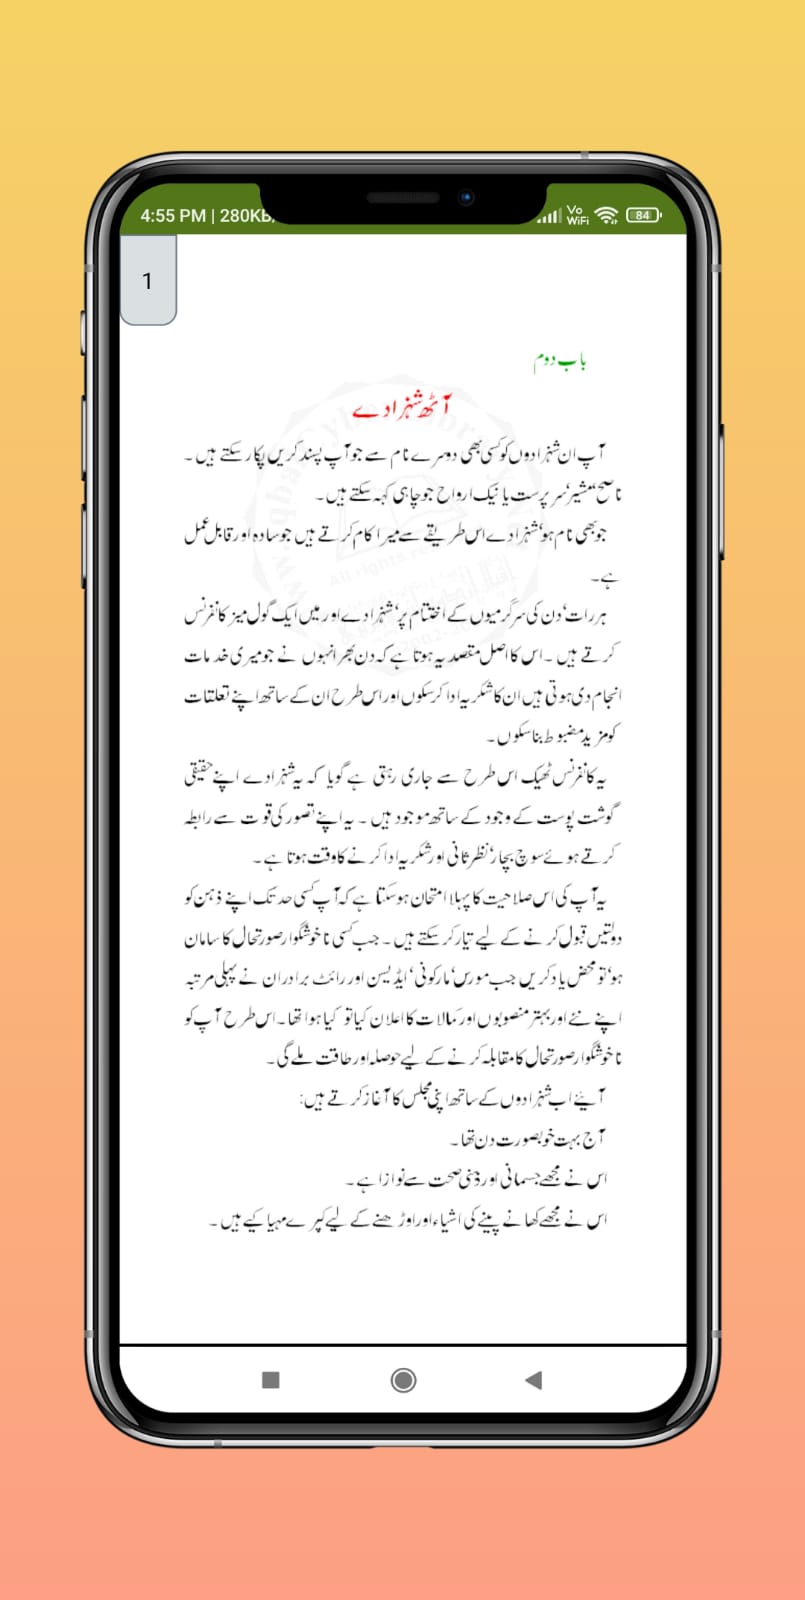 4:55 PM | 280KB/
Vo
WiFi
84
1
باب دوم
آٹھ شہزادے
آپ ان شہزادوں کو کسی بھی دوسرے نام سے جو آپ پسند کریں پکار سکتے ہیں ۔
ناصح‘ مشیر‘ سرپرست یا نیک ارواح جو چاہی کہہ سکتے ہیں۔
جو بھی نام ہو‘ شہزادے اس طریقے سے میرا کام کرتے ہیں جو سادہ اور قابل عمل
ہے۔
ہر رات‘ دن کی سرگرمیوں کے اختتام پر‘ شہزادے اور میں ایک گول میز کانفرنس
کرتے ہیں ۔ اس کا اصل مقصد یہ ہوتا ہے کہ دن بھر انہوں نے جو میری خدمات
انجام دی ہوتی ہیں ان کا شکریہ ادا کر سکوں اور اس طرح ان کے ساتھ اپنے تعلقات
کو مزید مضبوط بنا سکوں ۔
یہ کانفرنس ٹھیک اس طرح سے جاری رہتی ہے گویا کہ یہ شہزادے اپنے حقیقی
گوشت پوست کے وجود کے ساتھ موجود ہیں ۔ یہ اپنے تصور کی قوت سے رابطہ
کرتے ہوئے سوچ بچار‘ نظر ثانی اور شکریہ ادا کرنے کا وقت ہوتا ہے ۔
یہ آپ کی اس صلاحیت کا پہلا امتحان ہو سکتا ہے کہ آپ کسی حد تک اپنے ذہن کو
دولتیں قبول کرنے کے لیے تیار کر سکتے ہیں ۔ جب کسی ناخوشگوار صورتحال کا سامان
ہو‘ تو محض یاد کریں جب مورس‘ مارکونی‘ ایڈیسن اور رائٹ برادران نے پہلی مرتبہ
اپنے نئے اور بہتر منصوبوں اور کمالات کا اعلان کیا تو کیا ہوا تھا ۔ اس طرح آپ کو
ناخوشگوار صورتحال کا مقابلہ کرنے کے لیے حوصلہ اور طاقت ملے گی ۔
آیئے اب شہزادوں کے ساتھ اپنی مجلس کا آغاز کرتے ہیں:
آج بہت خوبصورت دن تھا ۔
اس نے مجھے جسمانی اور ذہنی صحت سے نوازا ہے ۔
اس نے مجھے کھانے پینے کی اشیاء اور اوڑھنے کے لیے کپرے مہیا کیے ہیں ۔